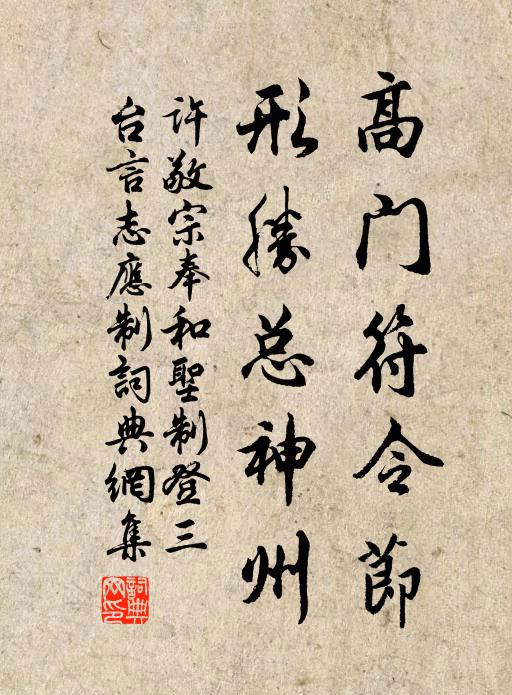 高门符令節
形勝总神州
許敬宗奉和聖制登三
台言志應制詞典網集
詞典网印